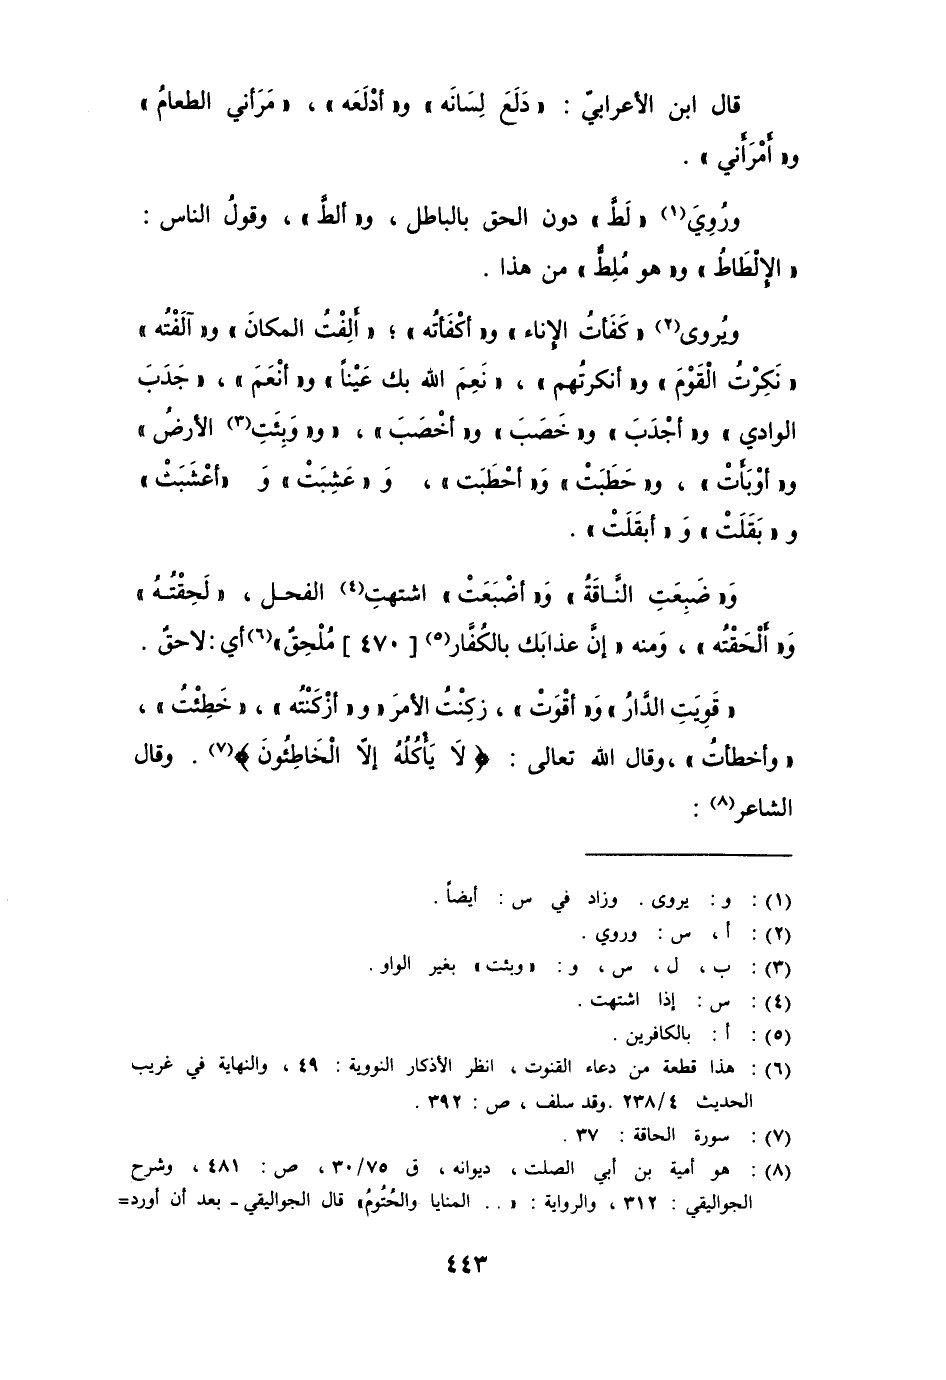 قال ابن الأعرابيّ : « دَلَعَ لِسَانَه » و« أدْلَعَه » ، « مَرَأني الطعامُ »
و« أَمْرَأَني » .
ورُوِيَ(١) « لَطَّ » دون الحق بالباطل ، و« ألطَّ » ، وقولُ الناس :
« الإِلْطَاطُ » و« هو مُلِطٌّ » من هذا .
ويُروى(٢) « كَفَأتُ الإِناء » و« أكْفَأتُه » ؛ « أَلِفْتُ المكانَ » و« آلَفْتُه »
« نَكِرْتُ الْقَوْمَ » و« أنكرتُهم » ، « نَعِمَ الله بك عَيْناً » و« أنْعَمَ » ، « جَدَبَ
الوادي » و« أجْدَبَ » و« خَصَبَ » و« أخْصَبَ » ، « و« وَبِئَتِ(٣) الأرضُ »
و« أوْبَأَتْ » ، و« حَطَبَتْ » وَ« أحْطَبَت » ، وَ « عَشِبَتْ » وَ «أعْشَبَتْ »
و « بَقَلَتْ » وَ « أبقَلَتْ » .
وَ« ضَبِعَتِ النَّاقَةُ » وَ« أضْبَعَتْ » اشتهتِ(٤) الفحل ، « لَحِقْتُهُ »
وَ« أَلْحَقْتُه » ، وَمنه « إنَّ عذابَك بالكُفَّار(٥) [ ٤٧٠ ] مُلْحِقٌ»(٦) أي :لاحقٌ .
« قَوِيَتِ الدَّارُ » وَ« أقْوَتْ » ، زكِنْتُ الأمرَ « و « أزْكَنْتُه » ، « خَطِئْتُ » ،
« وأخطأتُ » ،وقال الله تعالى : ﴿ لَا يَأْكُلُهُ إلاّ الْخَاطِئُونَ ﴾(٧) . وقال
الشاعر(٨) :
(١) : و : يروى . وزاد في س : أيضاً .
(٢) : أ ، س : وروي .
(٣) : ب ، ل ، س ، و : « وبئت » بغير الواو .
(٤) : س : إذا اشتهت .
(٥) : أ : بالكافرين .
(٦) : هذا قطعة من دعاء القنوت ، انظر الأذكار النووية : ٤٩ ، والنهاية في غريب
الحديث ٢٣٨/٤ .وقد سلف ، ص : ٣٩٢ .
(٧) : سورة الحاقة : ٣٧ .
(٨) : هو أمية بن أبي الصلت ، ديوانه ، ق ٣٠/٧٥ ، ص : ٤٨١ ، وشرح
الجواليقي : ٣١٢ ، والرواية : « . . المنايا والحُتُومُ» قال الجواليقي - بعد أن أورد=
٤٤٣